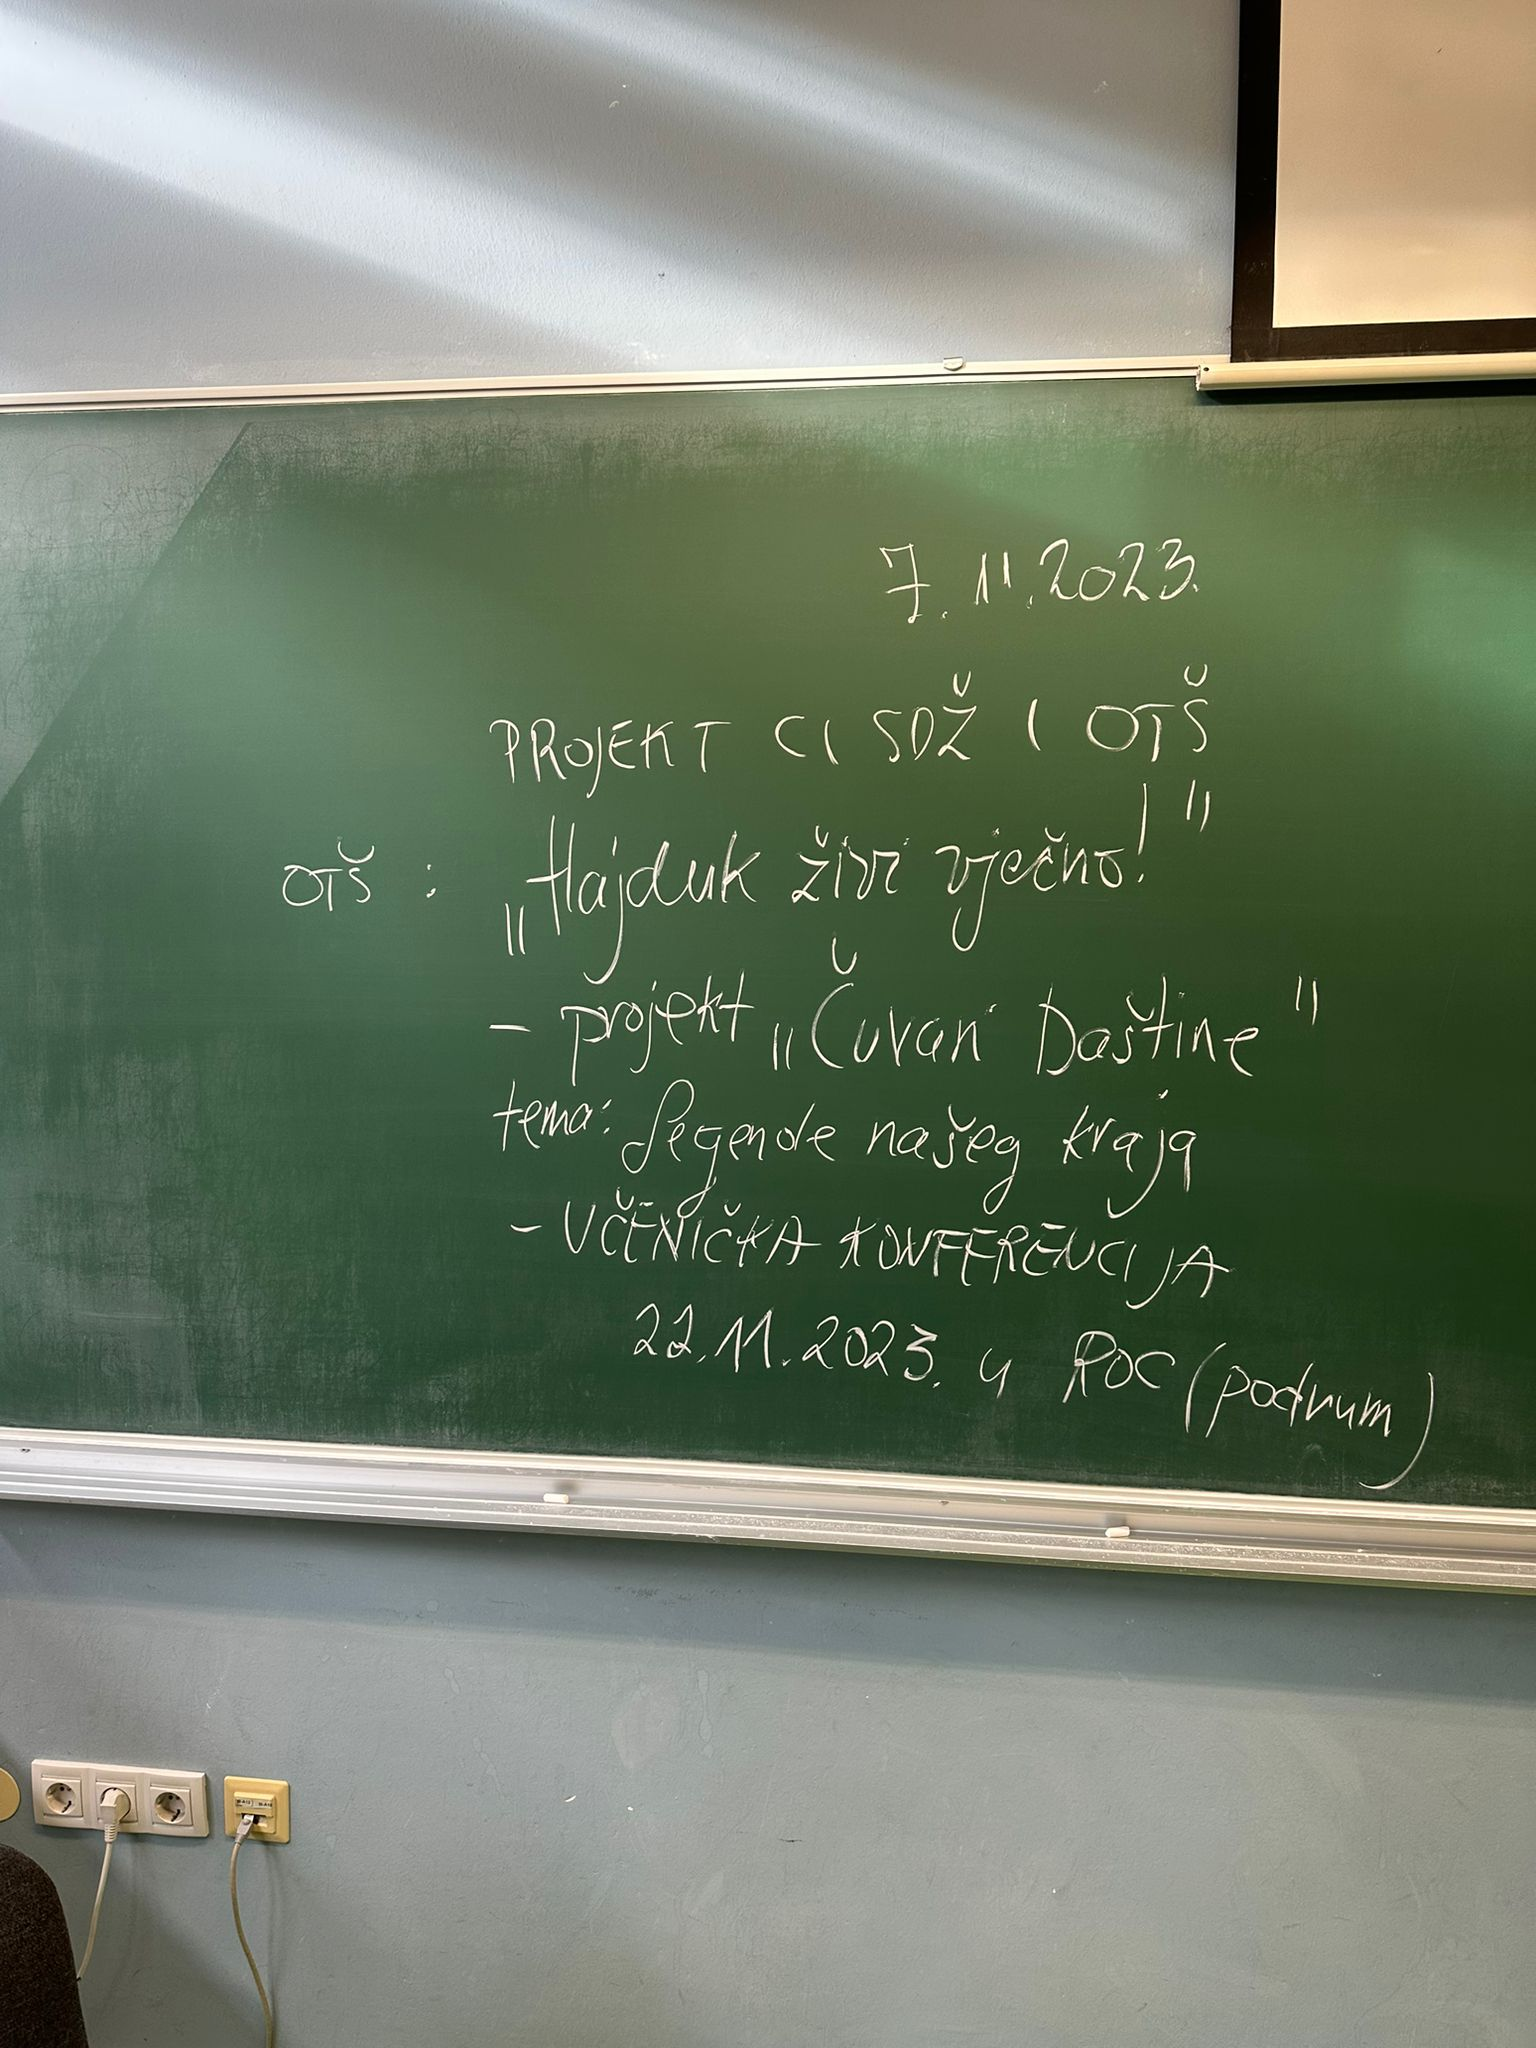 7. 11. 2023.
PROJEKT CI SDŽ I OTŠ
OTŠ : „Hajduk živi vječno!"
- projekt „Čuvari Baštine"
tema: Legende našeg kraja
- UČENIČKA KONFERENCIJA
22.11.2023. u ROC (podrum)